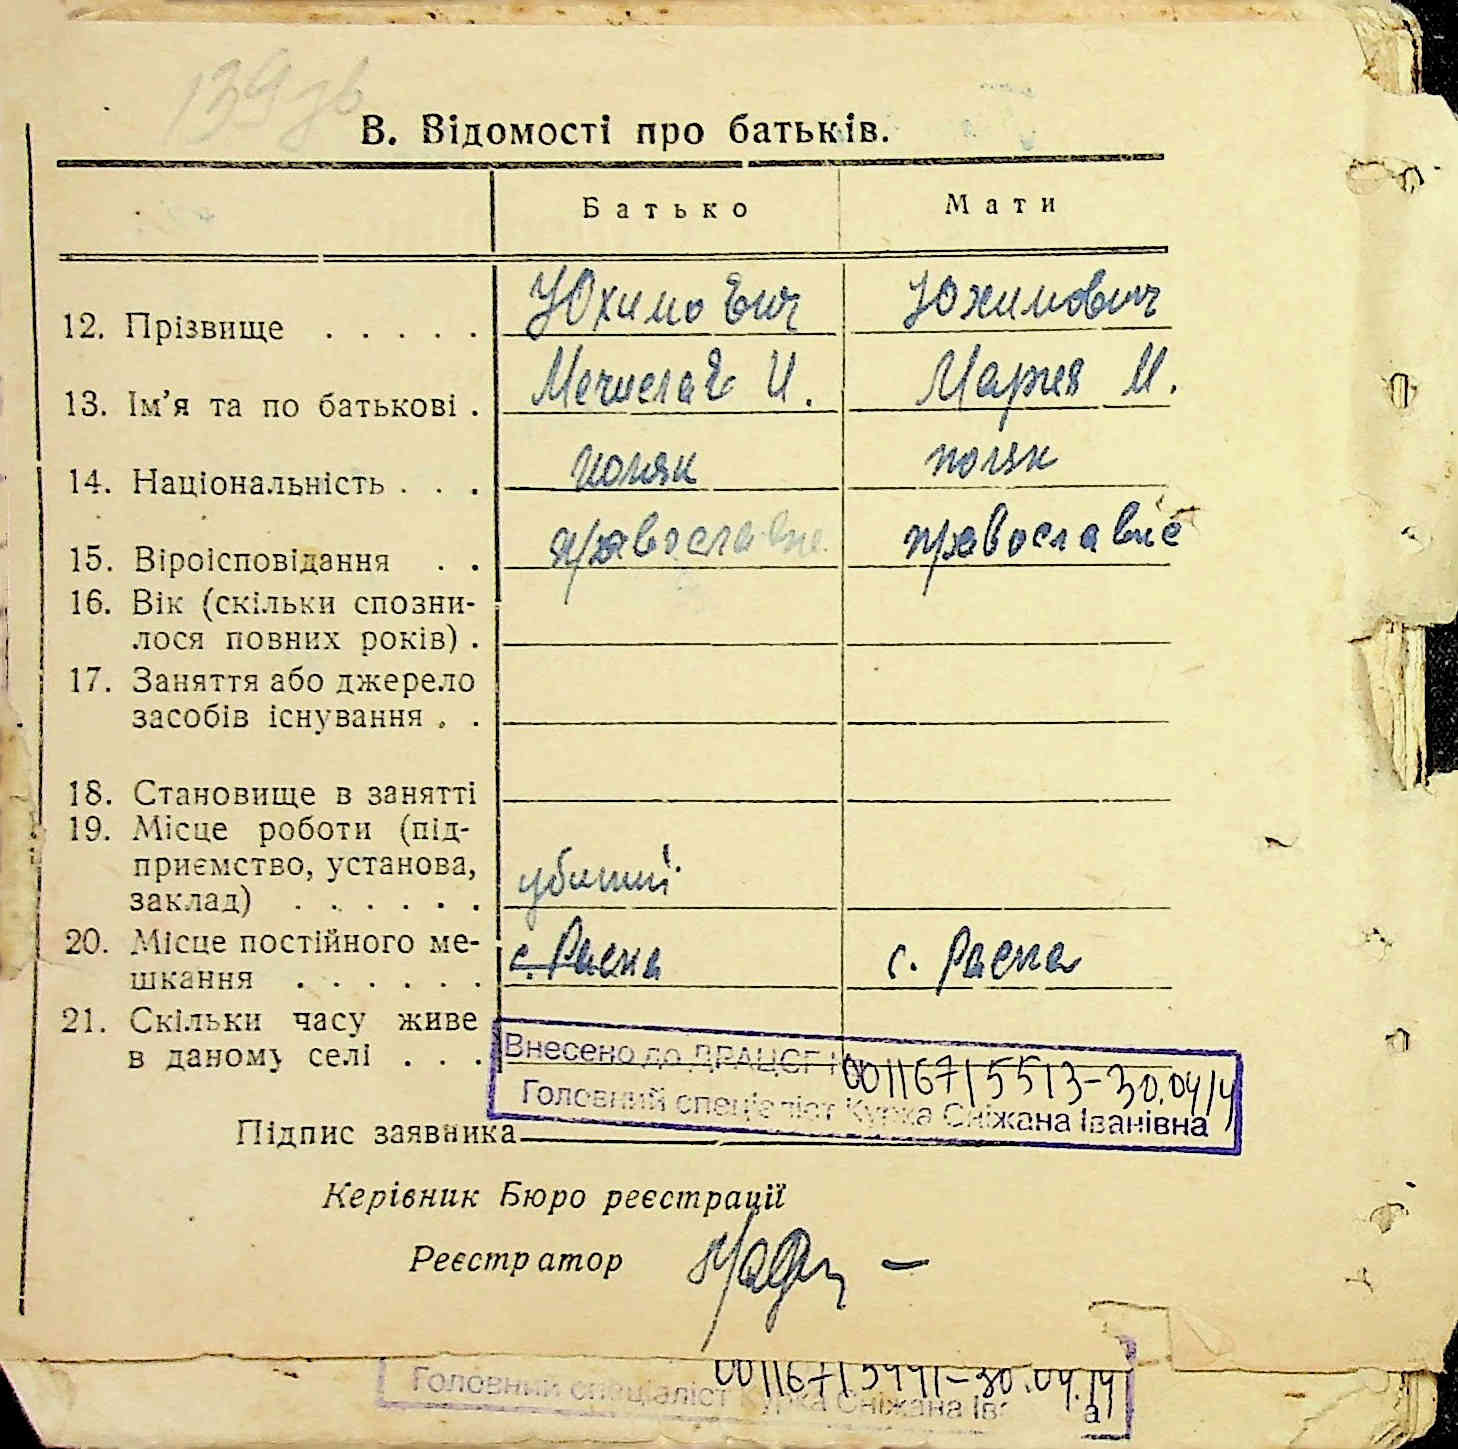 139 зв
В. Відомості про батьків.
Батько Мати
12. Прізвище . . . . . Юхимович Юхимович
13. Ім’я та по батькові . Мечислав И. Мария М.
14. Національність . . . поляк поляк
15. Віроісповідання . . православне православне
16. Вік (скільки спозни-
лося повних років) .
17. Заняття або джерело
засобів існування . .
18. Становище в занятті
19. Місце роботи (під-
приємство, установа,
заклад) . . . . . . убитий
20. Місце постійного ме-
шкання . . . . . . с. Расна с. Расна
21. Скільки часу живе
в даному селі . . .
Внесено до ДРАЦСГ 00116715513-30.04.14
Головний спеціаліст Курка Сніжана Іванівна
Підпис заявника
Керівник Бюро реєстрації
Реєстратор
00116715441-30.04.14
Головний спеціаліст Курка Сніжана Іва